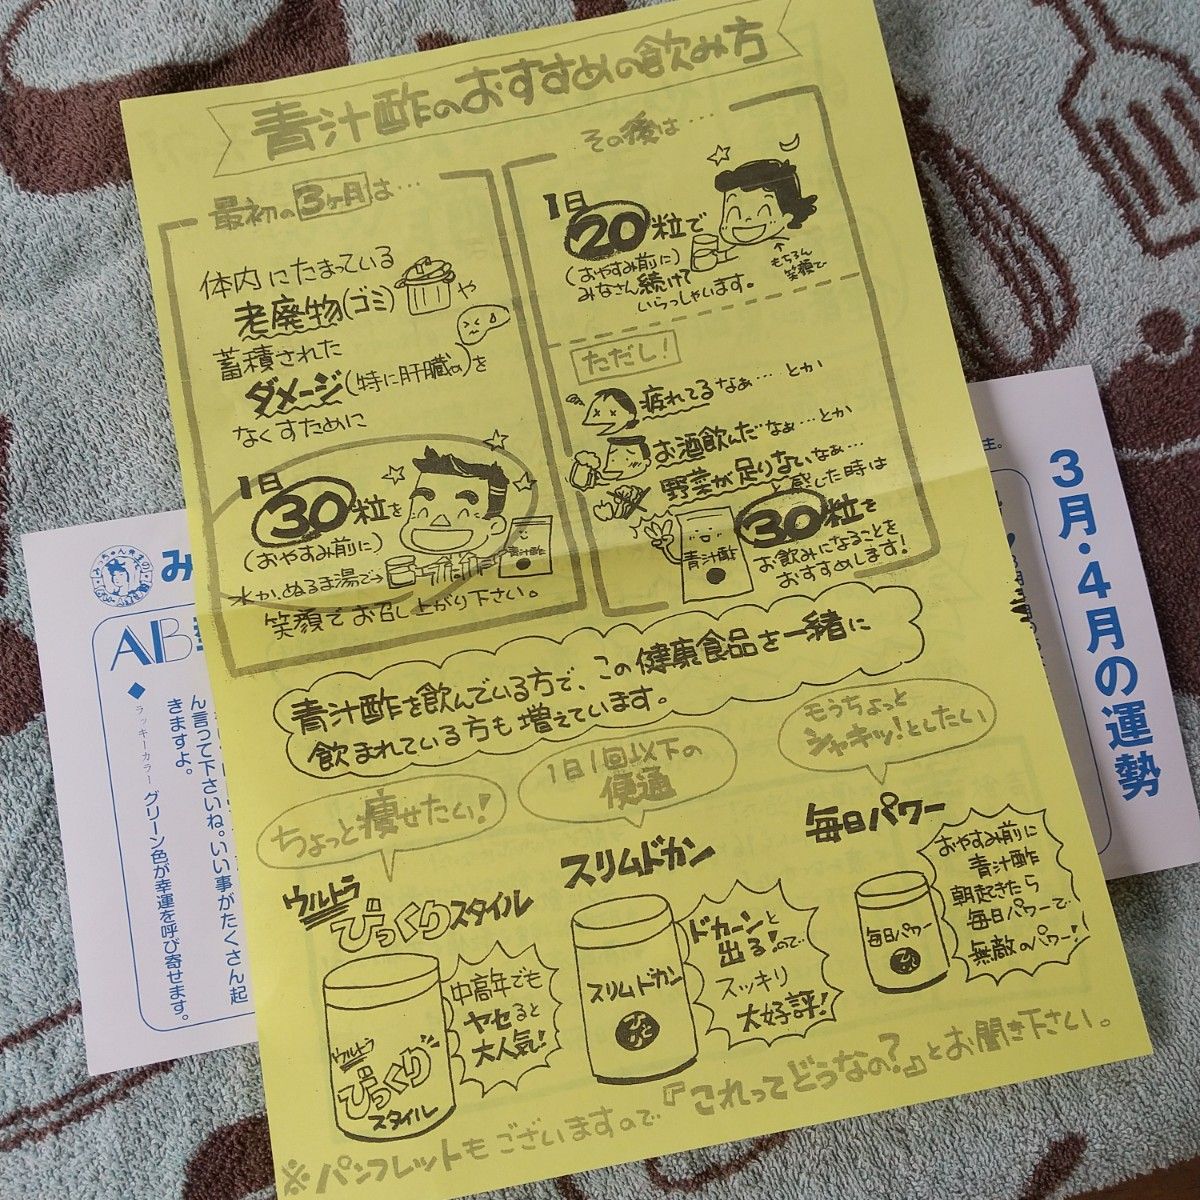 青汁酢のおすすめの飲み方
最初の3ヶ月は…
体内にたまっている
老廃物(ゴミ)や
蓄積された
ダメージ(特に肝臓の)を
なくすために
1日
30粒を
(おやすみ前に)
水か、ぬるま湯で→
笑顔でお召し上がり下さい。
青汁酢
その後は…
1日
20粒で
(おやすみ前に)
みなさん続けて
いらっしゃいます。
↑
もちろん
笑顔で
ただし!
疲れてるなぁ…とか
お酒飲んだなぁ…とか
野菜が足りないなぁ…
と感じた時は
30粒を
お飲みになることを
おすすめします!
青汁酢
青汁酢を飲んでいる方で、この健康食品を一緒に
飲まれている方も増えています。
ちょっと痩せたい!
ウルトラ
びっくりスタイル
中高年でも
ヤセると
大人気!
ウルトラ
びっくり
スタイル
1日1回以下の
便通
スリムドカン
ドカーンと
出る!ので…
スッキリ
大好評!
スリムドカン
もうちょっと
シャキッ!としたい
毎日パワー
おやすみ前に
青汁酢
朝起きたら
毎日パワーで
無敵のパワー!
毎日パワー
※パンフレットもございますので『これってどうなの?』とお聞き下さい。
3月・4月の運勢
み
AB
◆
ラッキーカラー
グリーン色が幸運を呼び寄せます。
きますよ。
ん言って下さいね。いい事がたくさん起